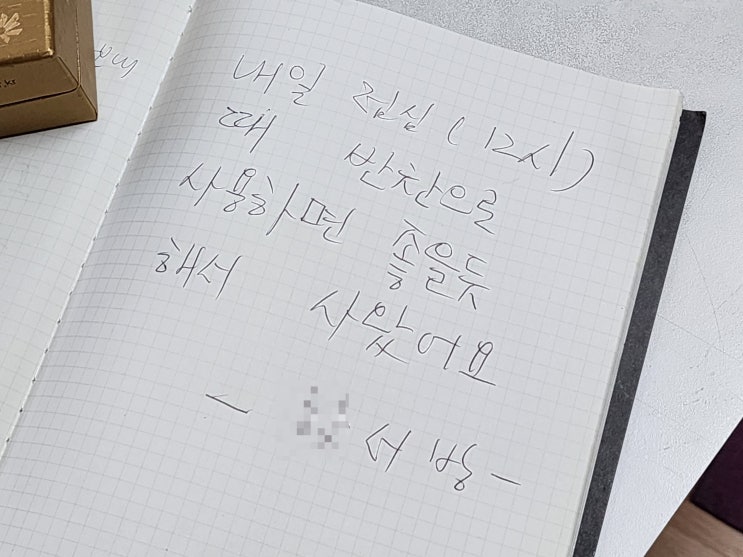 내일 점심(12시)
때 반찬으로
사용하면 좋을듯
해서 사왔어요
- 서방 -